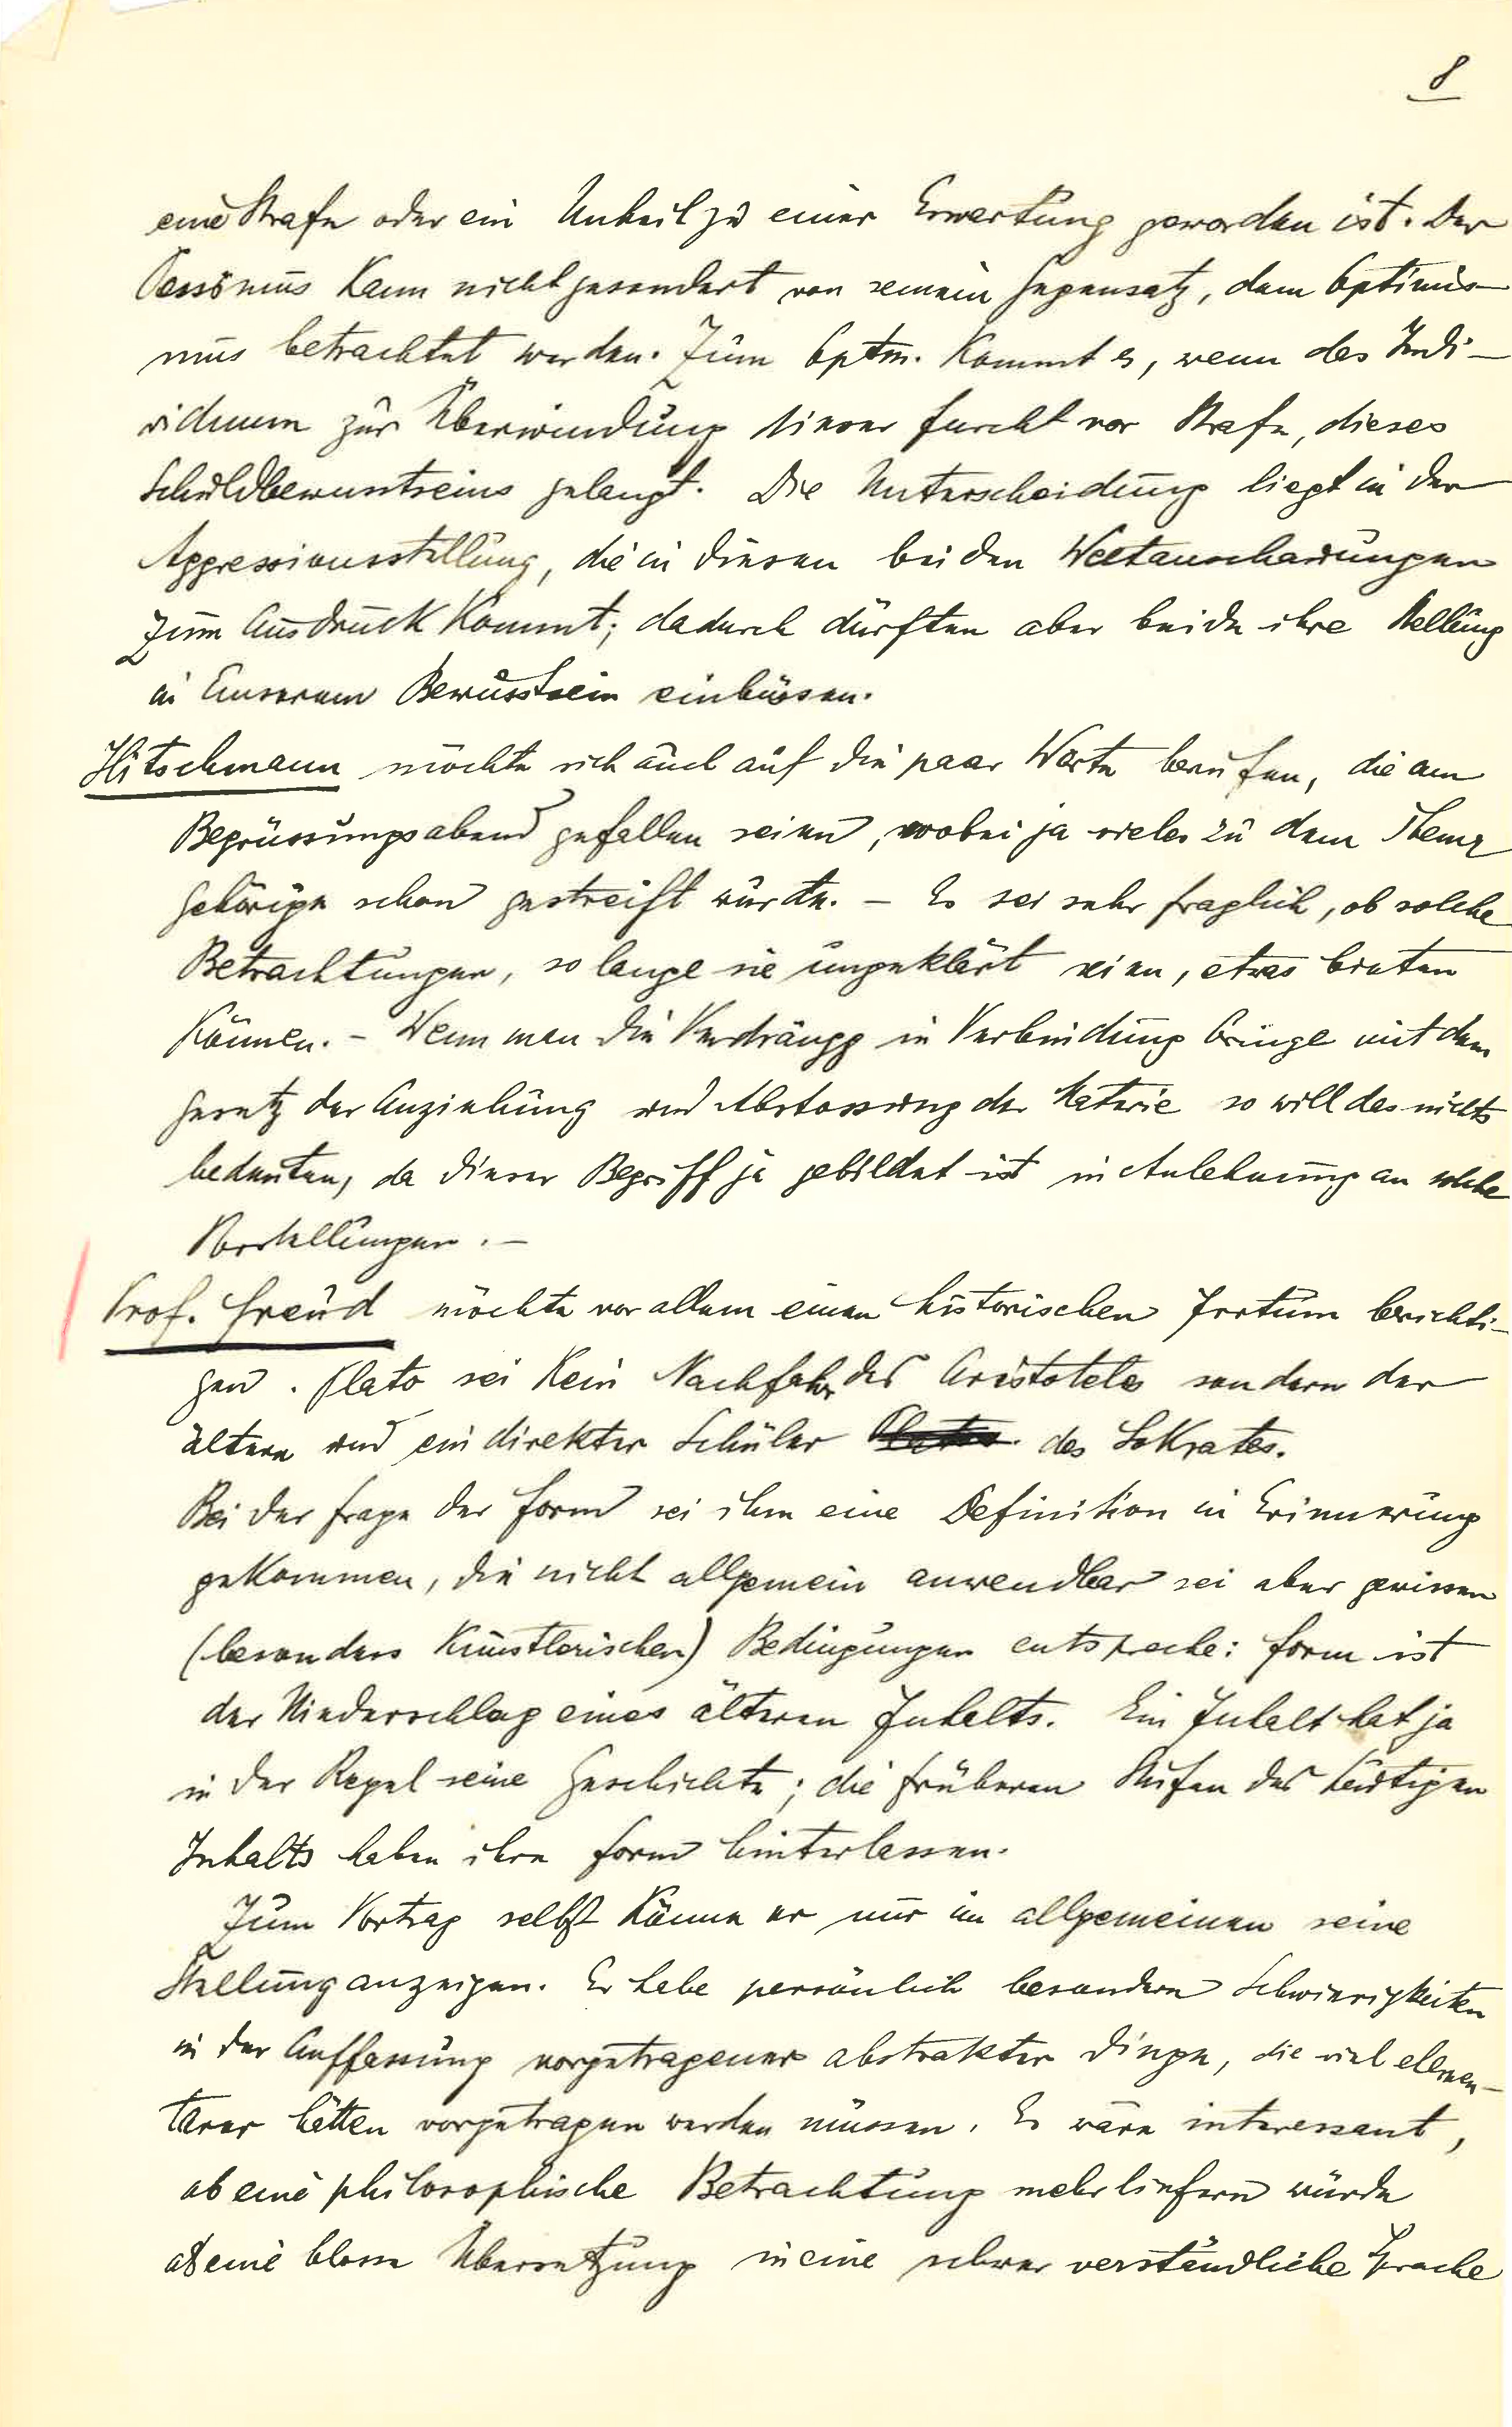 8
eine Strafe oder ein Unheil zu einer Erwartung geworden ist. Der
Pessismus kann nicht gesondert von seinem Gegensatz, dem Optimis-
mus betrachtet werden. Zum Optm. kommt es, wenn das Indi-
viduum zur Überwindung dieser Furcht vor Strafe, dieses
Schuldbewusstseins gelangt. Die Unterscheidung liegt in der
Aggressionsstellung, die in diesen beiden Weltanschauungen
zum Ausdruck kommt; dadurch dürften aber beide ihre Stellung
in unserem Bewusstsein einbüssen.
Hitschmann möchte sich auch auf die paar Worte berufen, die am
Begrüssungsabend gefallen seien, wobei ja vieles zu dem Thema
gehörige schon gestreift wurde. – Es sei sehr fraglich, ob solche
Betrachtungen, so lange sie ungeklärt seien, etwas bieten
können. – Wenn man die Verdrängg in Verbindung bringe mit dem
Gesetz der Anziehung und Abstossung der Materie so will das nichts
bedeuten, da dieser Begriff ja gebildet ist in Anlehnung an solche
Vorstellungen. –
Prof. Freud möchte vor allem einen historischen Irrtum berichti-
gen. Plato sei kein Nachfahr des Aristoteles sondern der
ältere und ein direkter Schüler des Sokrates.
Bei der Frage der Form sei ihm eine Definition in Erinnerung
gekommen, die nicht allgemein anwendbar sei aber gewissen
(besonders künstlerischen) Bedingungen entspreche: Form ist
der Niederschlag eines älteren Inhalts. Ein Inhalt hat ja
in der Regel seine Geschichte; die früheren Stufen des heutigen
Inhalts haben ihre Form hinterlassen.
Zum Vortrag selbst könne er nur im allgemeinen seine
Stellung anzeigen. Er habe persönlich besondere Schwierigkeiten
in der Auffassung vorgetragener abstrakter Dinge, die viel elemen-
tarer hätten vorgetragen werden müssen. Es wäre interessant,
ob eine philosophische Betrachtung mehr liefern würde
als eine blosse Übersetzung in eine schwer verständliche Sprache